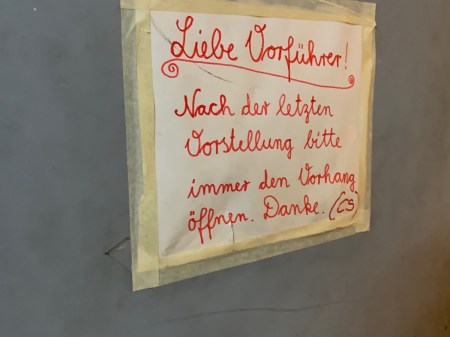 Liebe Vorführer!
Nach der letzten
Vorstellung bitte
immer den Vorhang
öffnen. Danke. (CS)